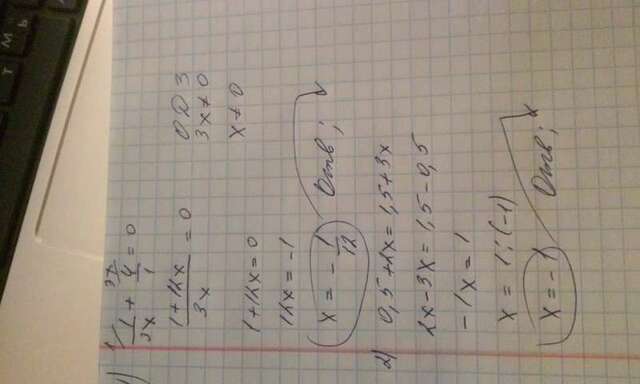 1) 1/3x + 4/1 = 0
1 3x
(1+12x)/3x = 0
ОДЗ
3x ≠ 0
x ≠ 0
1+12x = 0
12x = -1
x = -1/12 Отв;
2) 0,5+2x = 1,5+3x
2x-3x = 1,5-0,5
-1x = 1
x = 1:(-1)
x = -1 Отв;
т м ь